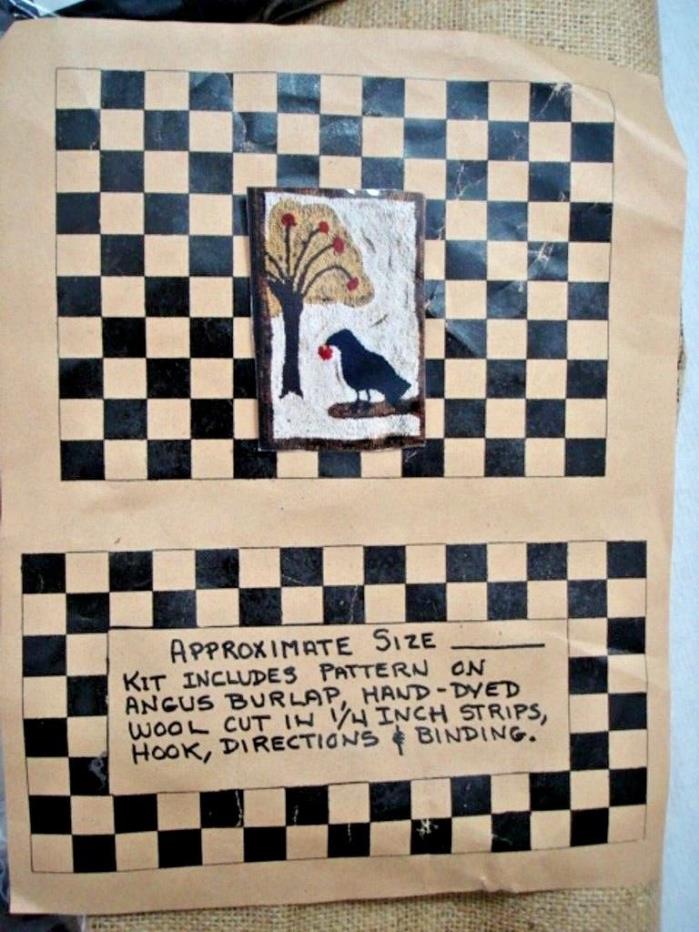 APPROXIMATE SIZE ______
KIT INCLUDES PATTERN ON
ANGUS BURLAP, HAND-DYED
WOOL CUT IN 1/4 INCH STRIPS,
HOOK, DIRECTIONS & BINDING.